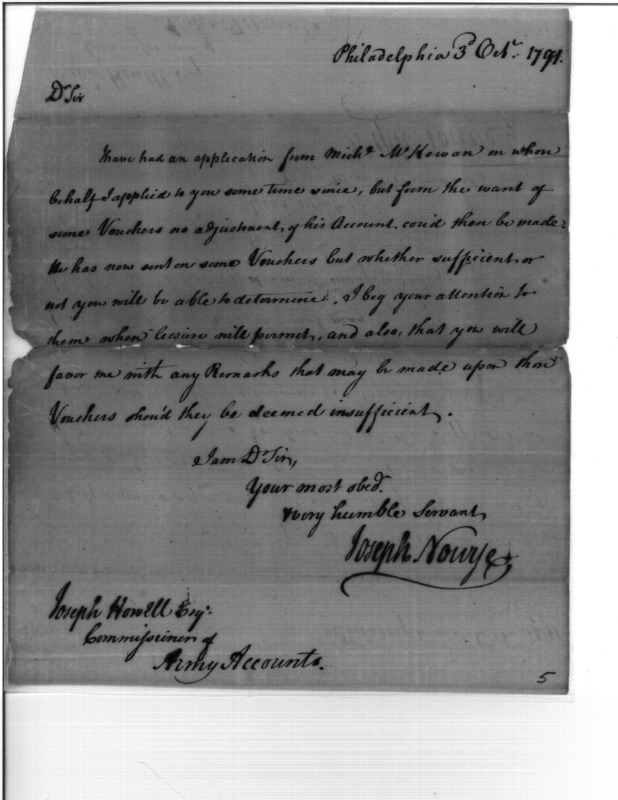 Philadelphia 3d Octr. 1791.
Dr Sir
I have had an application from Michl. McKowan on whose
behalf I applied to you some time since, but from the want of
some Vouchers no adjustment of his Account could then be made.
He has now sent on some Vouchers but whether sufficient or
not you will be able to determine. I beg your attention to
them when leisure will permit, and also, that you will
favor me with any Remarks that may be made upon those
Vouchers shou'd they be deemed insufficient.
I am Dr Sir,
Your most obedt.
& very humble Servant
Joseph Nourse
Joseph Howell Esqr.
Commissioner of
Army Accounts.
5